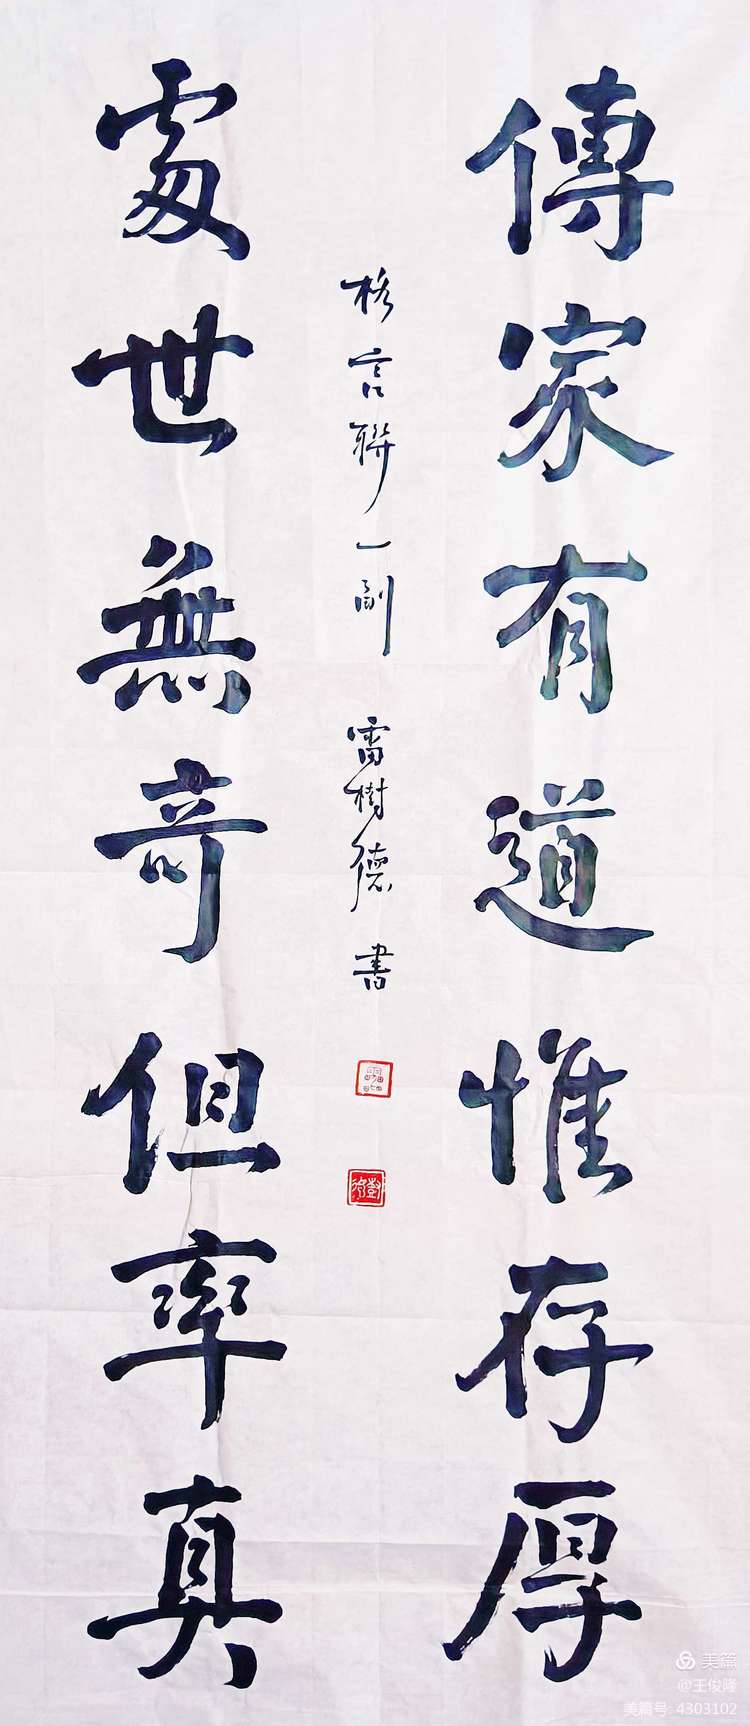 傳家有道惟存厚
處世無奇但率真
格言聯一副 雷樹德書
美篇
@王俊隆
美篇号: 4303102